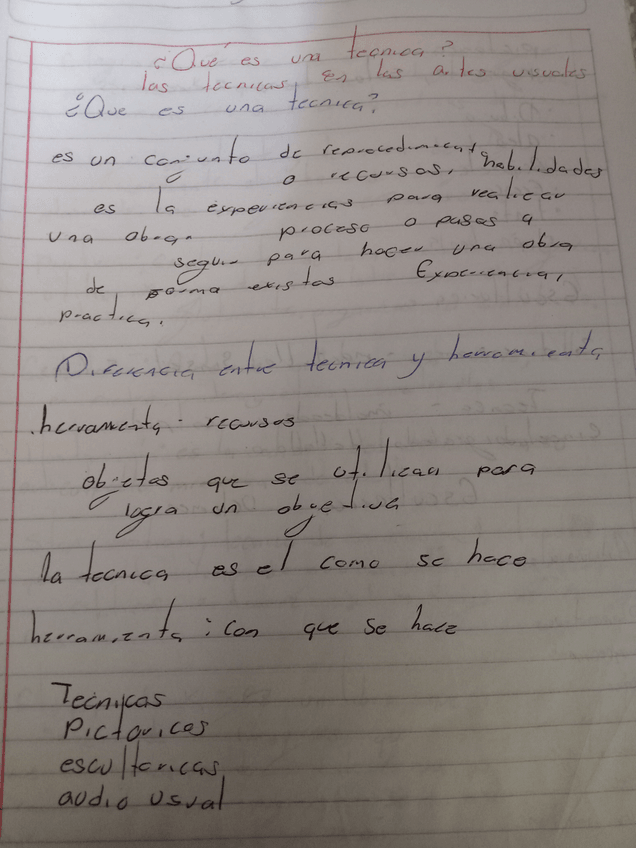 ¿Qué es una tecnica?
las tecnicas En las artes visuales
¿Que es una tecnica?
es un conjunto de reprocedimient habilidades
o recursos,
es la experiencias para realicar
una obra. proceso o pasos a
seguir para hacer una obra
de forma existas Experiencia,
practica.
Diferencia entre tecnica y herramienta
herramenta. recursos
objetos que se utilican para
logra un objetivo
la tecnica es el como se hace
herramienta: Con que se hace
Tecnicas
Pictoricas
escultoricas
audio usual